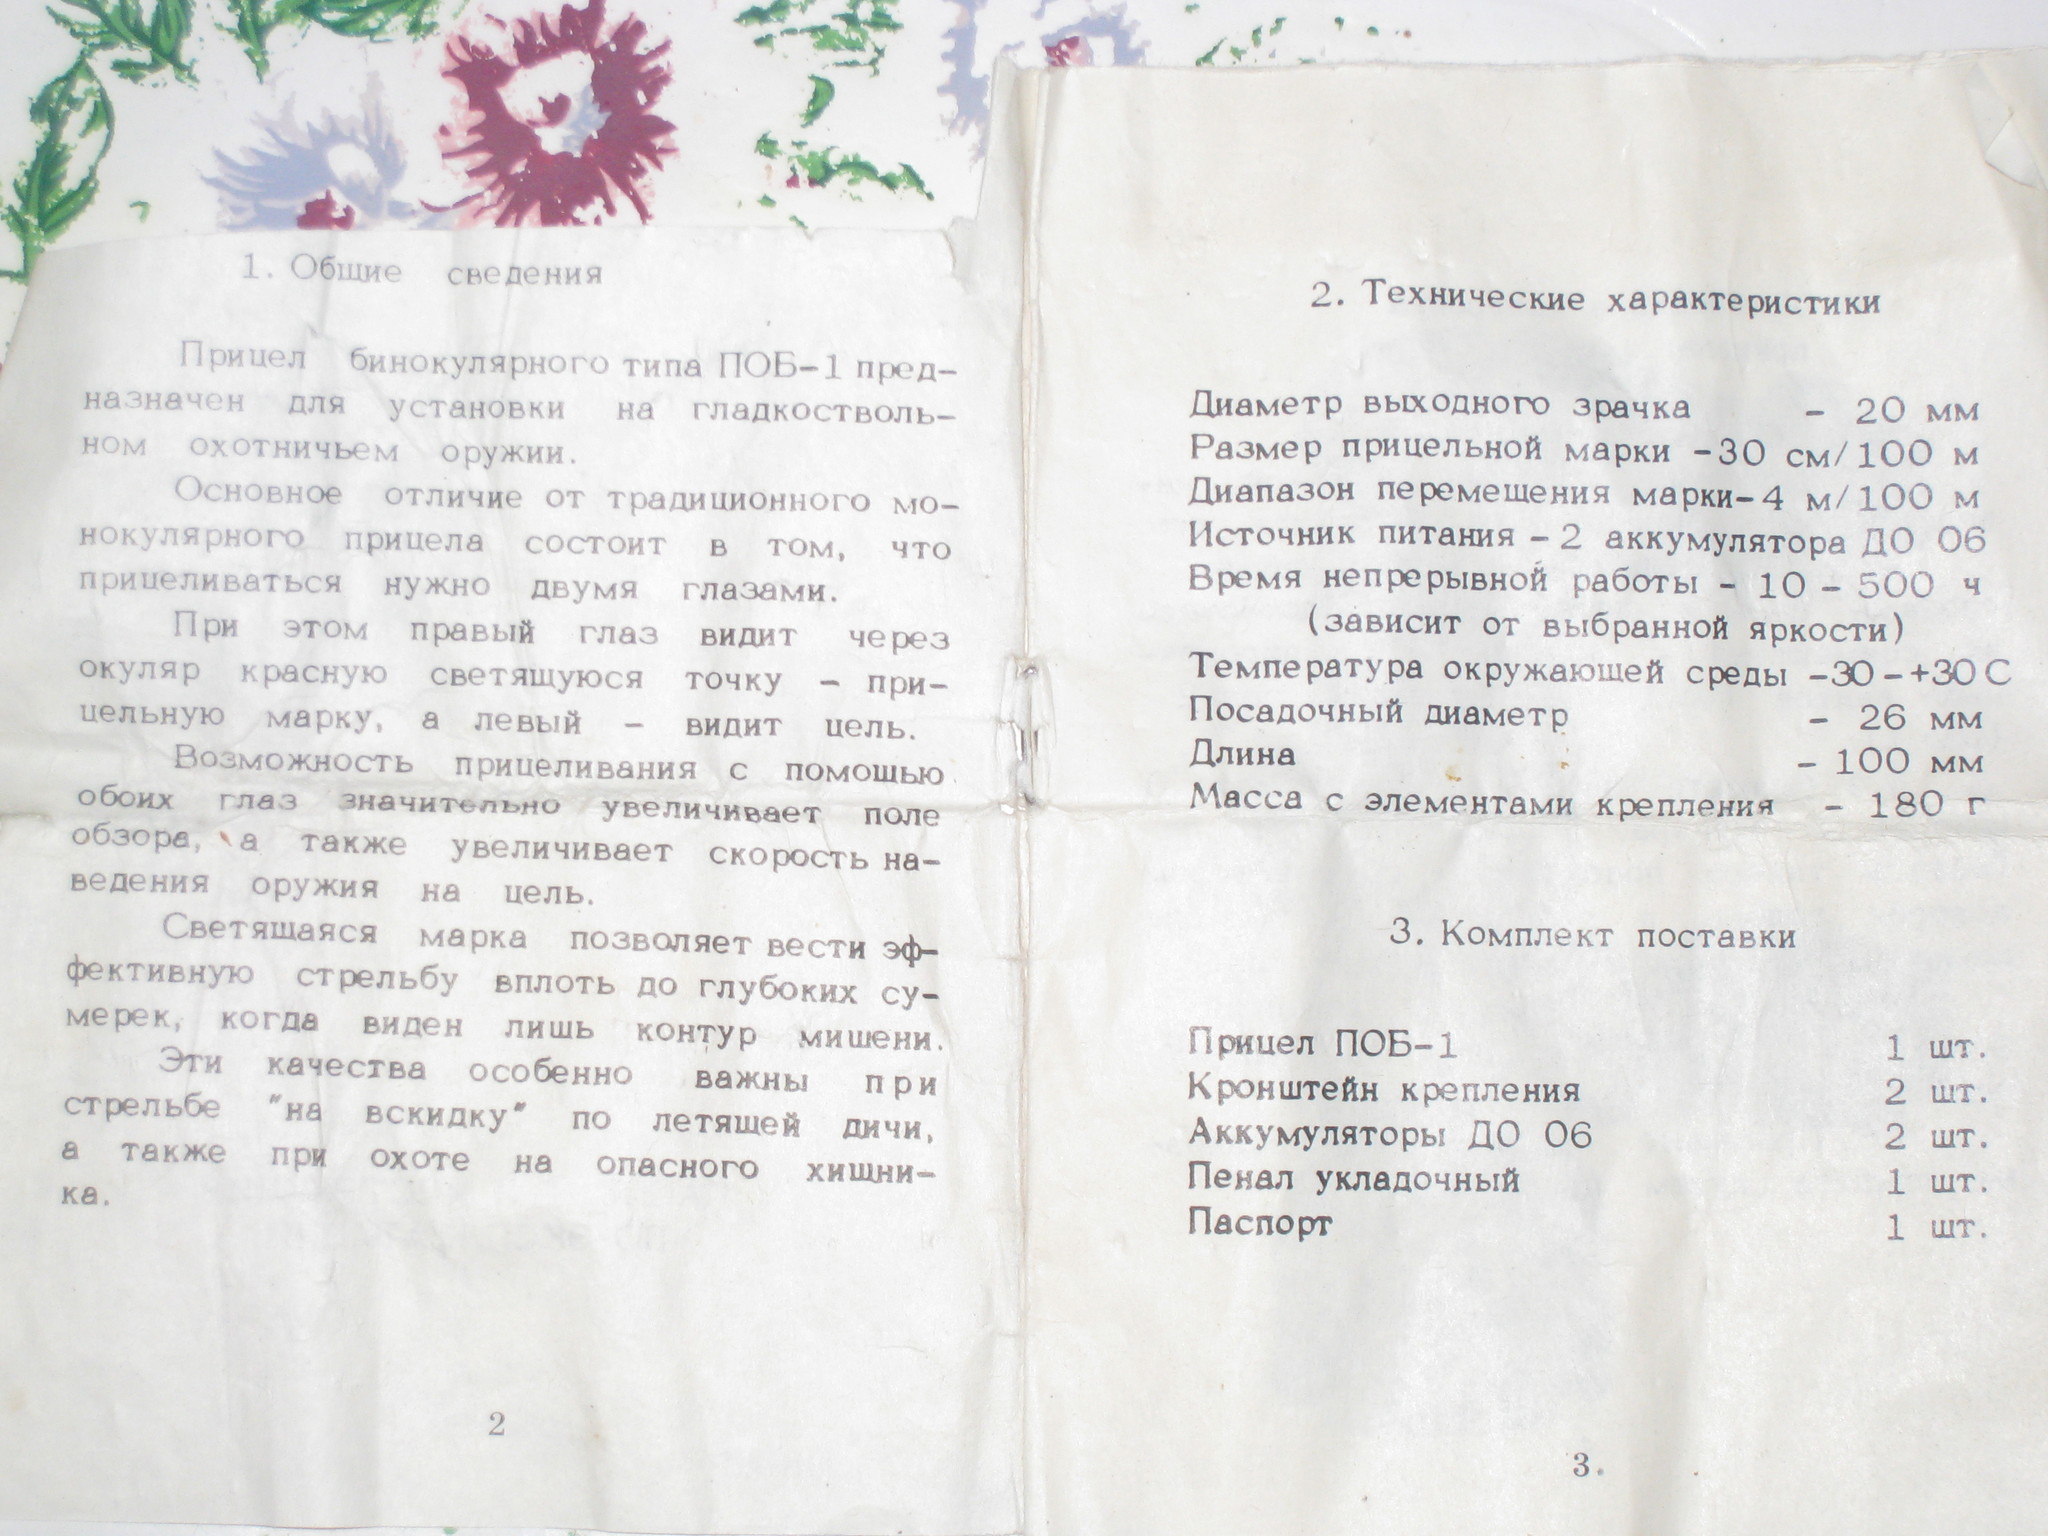 1. Общие сведения
Прицел бинокулярного типа ПОБ-1 пред-
назначен для установки на гладкостволь-
ном охотничьем оружии.
Основное отличие от традиционного мо-
нокулярного прицела состоит в том, что
прицеливаться нужно двумя глазами.
При этом правый глаз видит через
окуляр красную светящуюся точку - при-
цельную марку, а левый - видит цель.
Возможность прицеливания с помощью
обоих глаз значительно увеличивает поле
обзора, а также увеличивает скорость на-
ведения оружия на цель.
Светящаяся марка позволяет вести эф-
фективную стрельбу вплоть до глубоких су-
мерек, когда виден лишь контур мишени.
Эти качества особенно важны при
стрельбе "на вскидку" по летящей дичи,
а также при охоте на опасного хищни-
ка.
2
2. Технические характеристики
Диаметр выходного зрачка - 20 мм
Размер прицельной марки -30 см/100 м
Диапазон перемещения марки-4 м/100 м
Источник питания - 2 аккумулятора ДО 06
Время непрерывной работы - 10 - 500 ч
(зависит от выбранной яркости)
Температура окружающей среды -30-+30 С
Посадочный диаметр - 26 мм
Длина - 100 мм
Масса с элементами крепления - 180 г
3. Комплект поставки
Прицел ПОБ-1 1 шт.
Кронштейн крепления 2 шт.
Аккумуляторы ДО 06 2 шт.
Пенал укладочный 1 шт.
Паспорт 1 шт.
3.